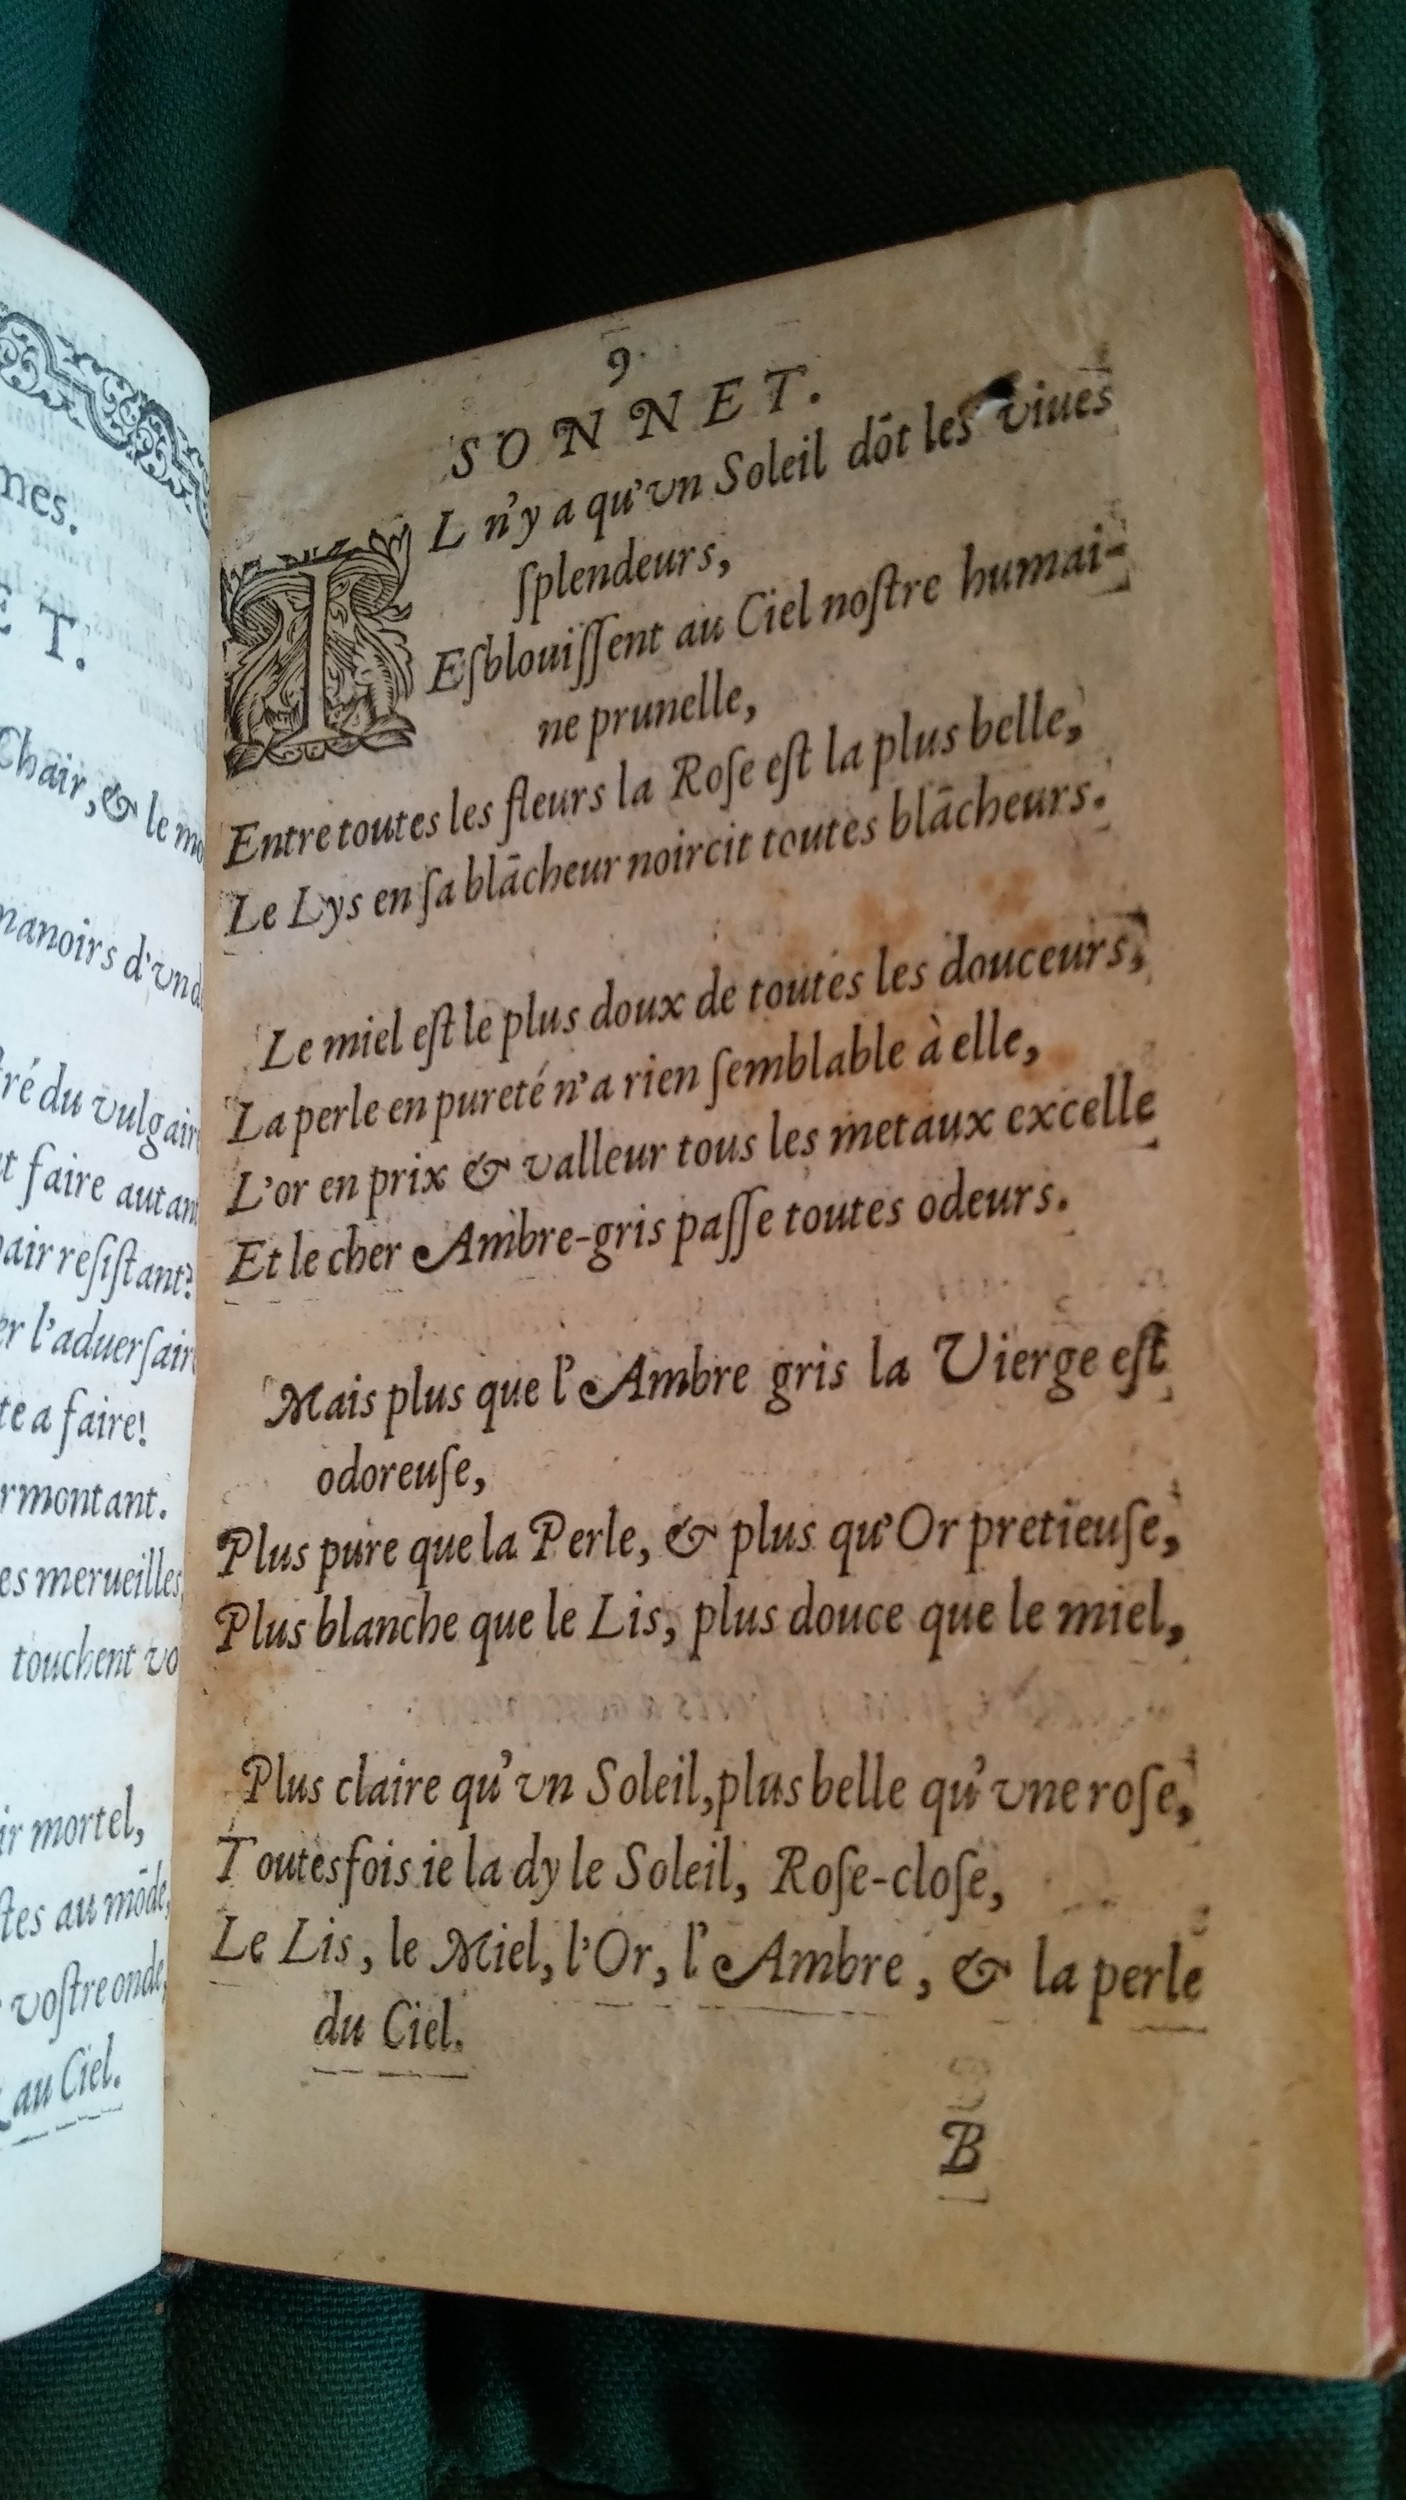 mes.
E T.
Chair, & le mo
manoirs d'vn d
ré du vulgair
t faire autan
air resiſtant?
er l'aduerſair
te a faire!
rmontant.
es merueilles,
touchent vo
ir mortel,
ſtes au mōde,
voſtre onde,
au Ciel.
9
SONNET.
IL n'y a qu'vn Soleil dōt les viues
ſplendeurs,
Eſblouiſſent au Ciel noſtre humai-
ne prunelle,
Entre toutes les fleurs la Roſe eſt la plus belle,
Le Lys en ſa blācheur noircit toutes blācheurs.
Le miel eſt le plus doux de toutes les douceurs,
La perle en pureté n'a rien ſemblable à elle,
L'or en prix & valleur tous les metaux excelle
Et le cher Ambre-gris paſſe toutes odeurs.
Mais plus que l'Ambre gris la Vierge eſt
odoreuſe,
Plus pure que la Perle, & plus qu'Or pretieuſe,
Plus blanche que le Lis, plus douce que le miel,
Plus claire qu'vn Soleil, plus belle qu'vne roſe,
Toutesfois ie la dy le Soleil, Roſe-cloſe,
Le Lis, le Miel, l'Or, l'Ambre, & la perle
du Ciel.
B